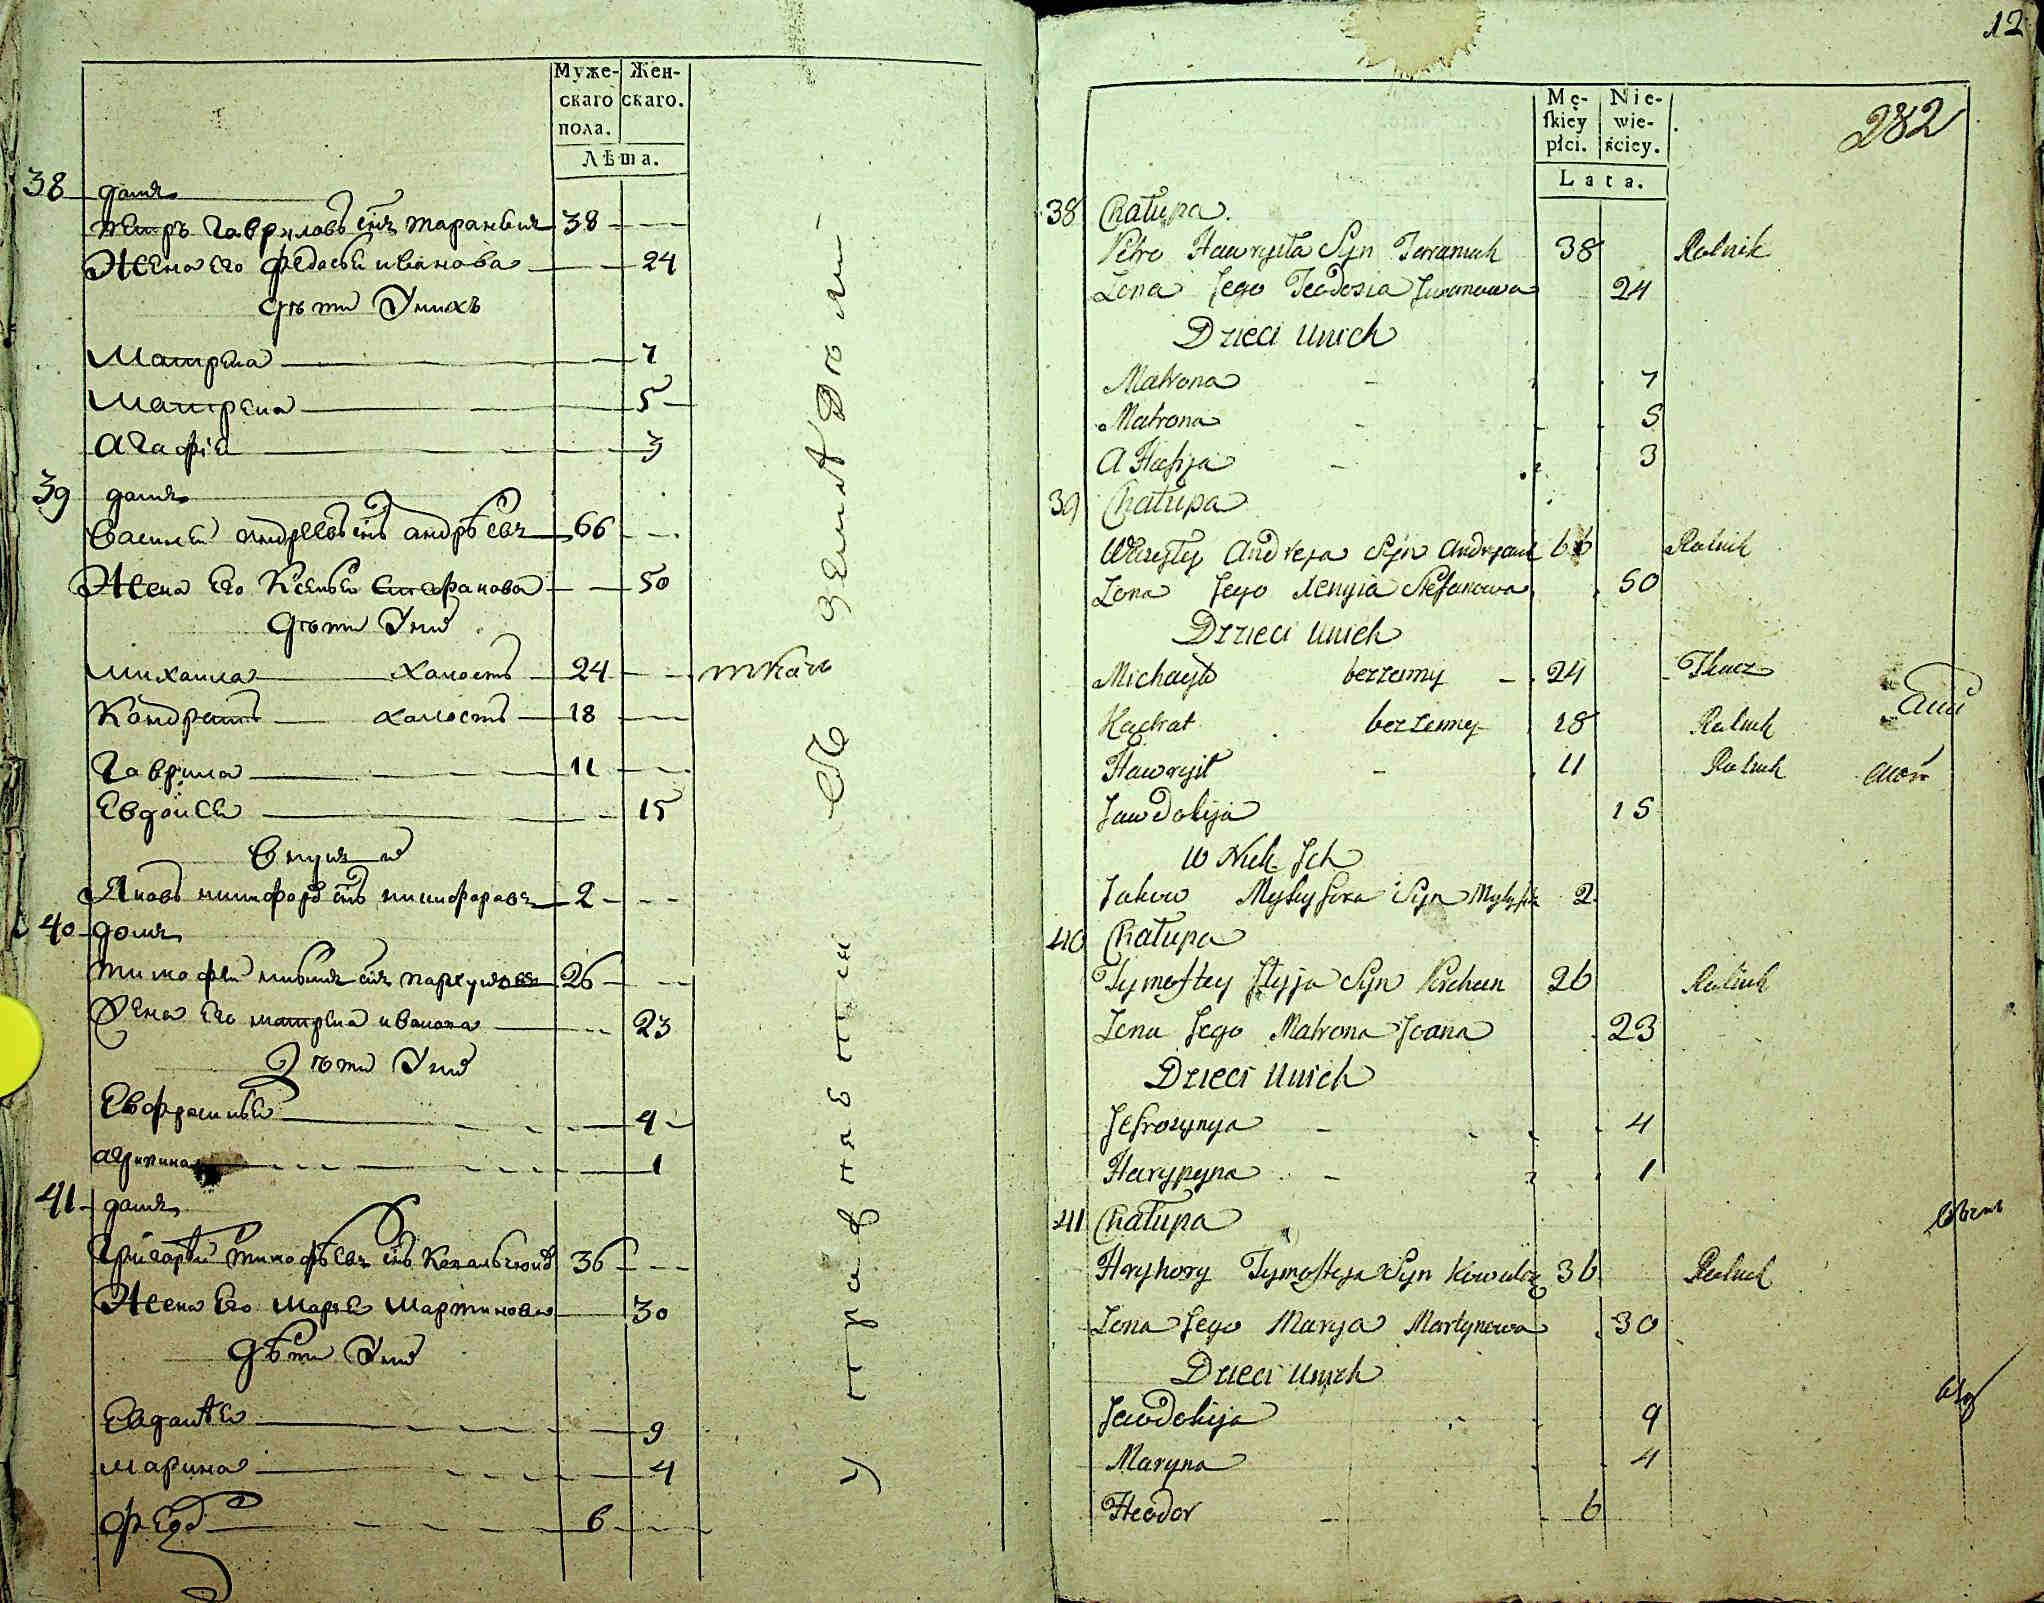 Муже-
скаго
пола.
Жен-
скаго.
Лѣта.
38 домъ
петръ Гавриловъ снъ таранюкъ 38
Жена его федосья иванова 24
дѣти у нихъ
Матрена 7
матрена 5
Агафiя 3
39 домъ
василей андреевъ снъ 66
Жена его Ксенья Стефанова 50
дѣти у них
михаила холостъ 24 ткачъ
Кондратъ холостъ 18
Гаврила 11
Евдокея 15
внук и
Яковъ никифоровъ снъ 2
40 домъ
тимофей снъ 26
Жена его матрена иванова 23
Дѣти у них
Евфросинья 4
агрипина 1
41 домъ
Григорей тимофѣевъ снъ 36
Жена его марья мартинова 30
дѣти у них
Евдокея 9
марина 4
федоръ 6
упражняется
земледѣ
12
282
Mę-
skiey
płci.
Nie-
wie-
ściey.
Lata.
38 Chałupa
Petro Hawryła Syn Taraniuk 38 Rolnik
Zona Jego Teodosia Iwanowa 24
Dzieci unich
Matrona 7
Matrona 5
A Hafija 3
39 Chałupa
Wasyly Andreja Syn 66 Rolnik
Zona Jego Xenyia Stefanowa 50
Dzieci unich
Michayło bezzenny 24 Tkacz
bezzenny 18 Rolnik
Hawryił 11 Rolnik
Jawdokija 15
W Nuk Ich
Jakow Mykyfora Syn 2
40 Chałupa
Tymoftey Syn 26 Rolnik
Zona Jego Matrona Joana 23
Dzieci unich
Jefrozynya 4
Harypyna 1
41 Chałupa
Hryhory Tymofteja Syn 36 Rolnik
Zona Jego Marya Martynowa 30
Dzieci unich
Jewdokija 9
Maryna 4
Fteodor 6